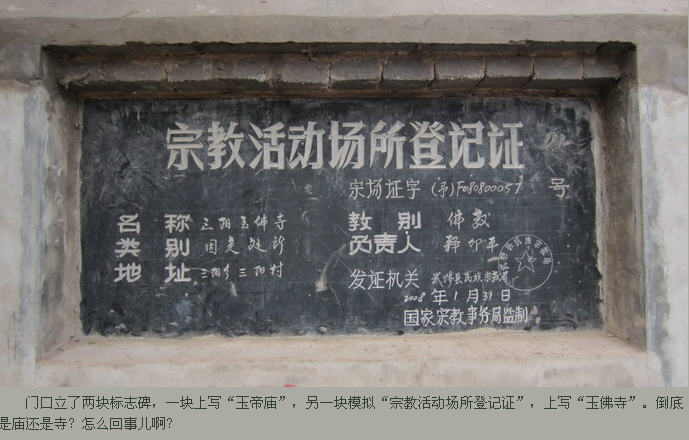 宗教活动场所登记证
宗场证字 (豫)F080800057 号
名 称 三阳玉佛寺 教 别 佛教
类 别 固定处所 负责人 释印平
地 址 三阳乡三阳村 发证机关 武陟县民族宗教局
2008年1月31日
国家宗教事务局监制
门口立了两块标志碑，一块上写“玉帝庙”，另一块模拟“宗教活动场所登记证”，上写“玉佛寺”。倒底
是庙还是寺？怎么回事儿啊？